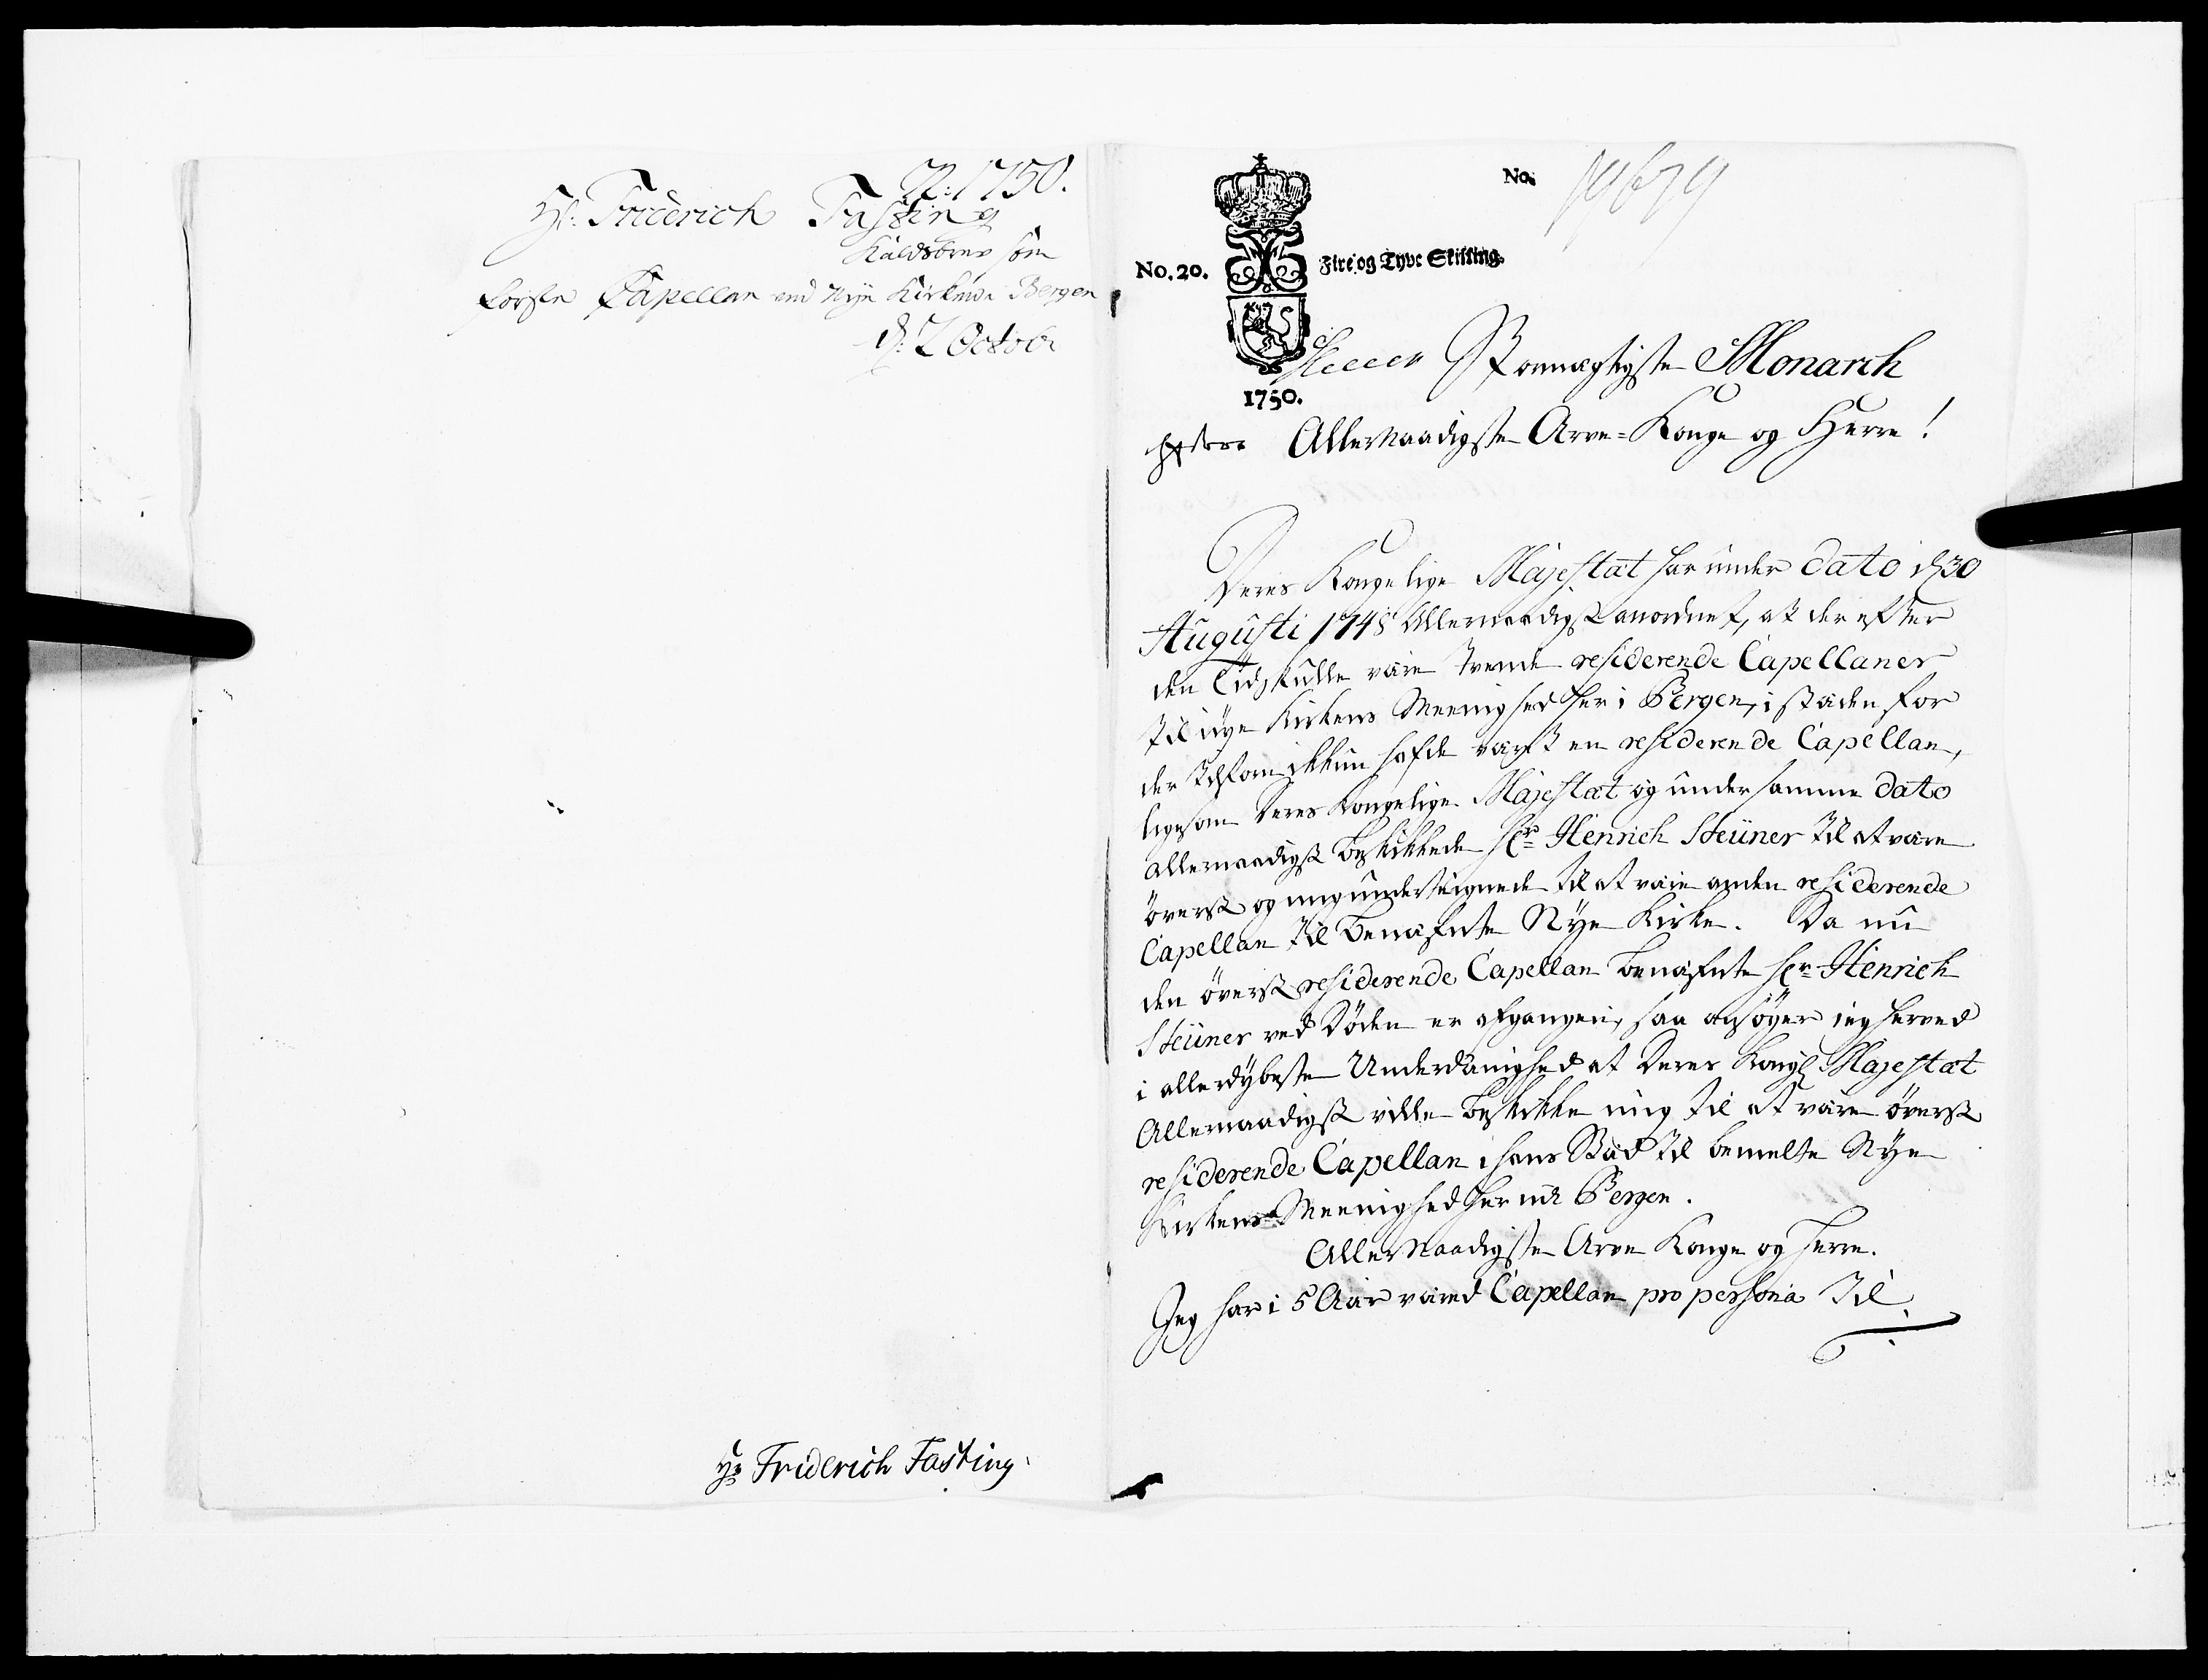 R: 1750.
Hr. Friderich Fasting
Kaldsbrev som
første Capellan ved Nye Kirken i Bergen
d: 2 Octobr
Hr Friderich Fasting
No. 19679
No. 20. Fire og Tyve Skilling.
1750.
Stormægtigste Monarch
Allernaadigste Arve-Konge og Herre!
Deres Kongelige Majestæt har under dato d 30
Augusti 1748 Allernaadigst anordnet, at der efter
den Tid skulle være tvende residerende Capellaner
til nÿe Kirkens Meenighed her i Bergen, i stæden for
der tilforn ikkun hafde været en residerende Capellan,
ligesom Deres Kongelige Majestæt og under samme dato
allernaadigst beskikkede Hr Henrich Steüner til at være
øverst og mig underteignede til at være anden residerende
Capellan til benæfnte Nÿe Kirke. Da nu
den øverst residerende Capellan benæfnte Hr Henrich
Steüner ved Døden er afgangen, saa ansøger jeg herved
i allerdÿbeste Underdanighed at Deres Kongl Majestæt
Allernaadigst vilde beskikke mig til at være øverst
residerende Capellan i hans Stæd til bemelte Nÿe
Kirkens Meenighed her udi Bergen.
Allernaadigste Arve Konge og Herre.
Jeg har i 5 Aar været Capellan pro persona til